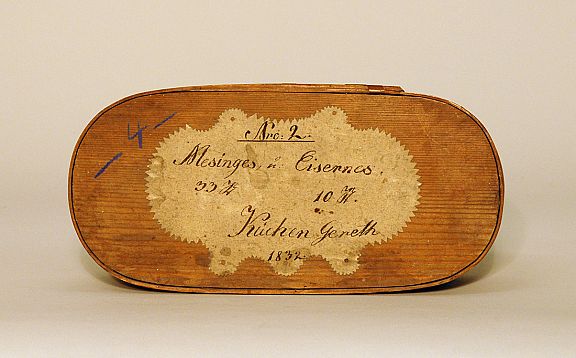 - 4 -
Nro: 2.
Mesinges, u. Eisernes.
33 ℔ 10 ℔.
Kuchen Gereth
1832